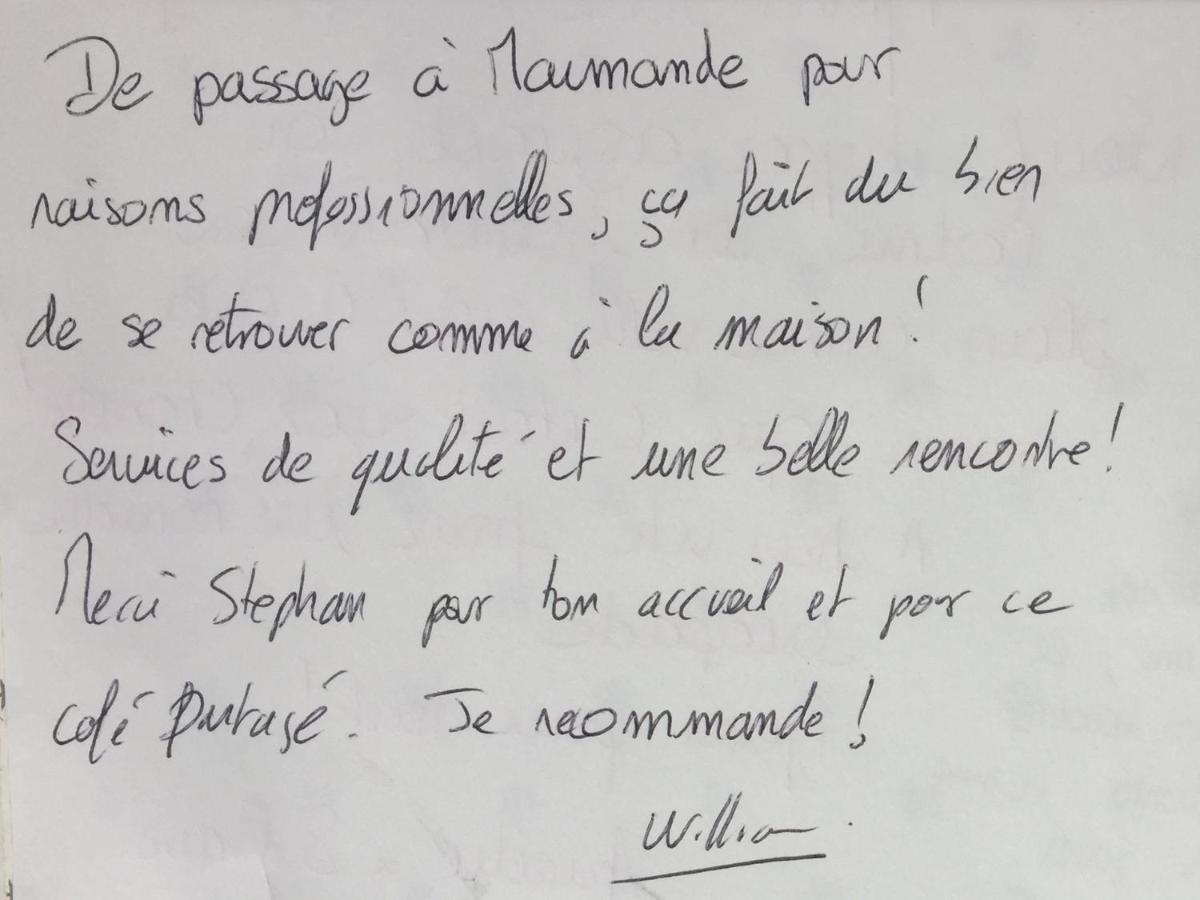 De passage à Marmande pour
raisons professionnelles, ça fait du bien
de se retrouver comme à la maison !
Services de qualité et une belle rencontre !
Merci Stephan pour ton accueil et pour ce
café partagé. Je recommande !
William